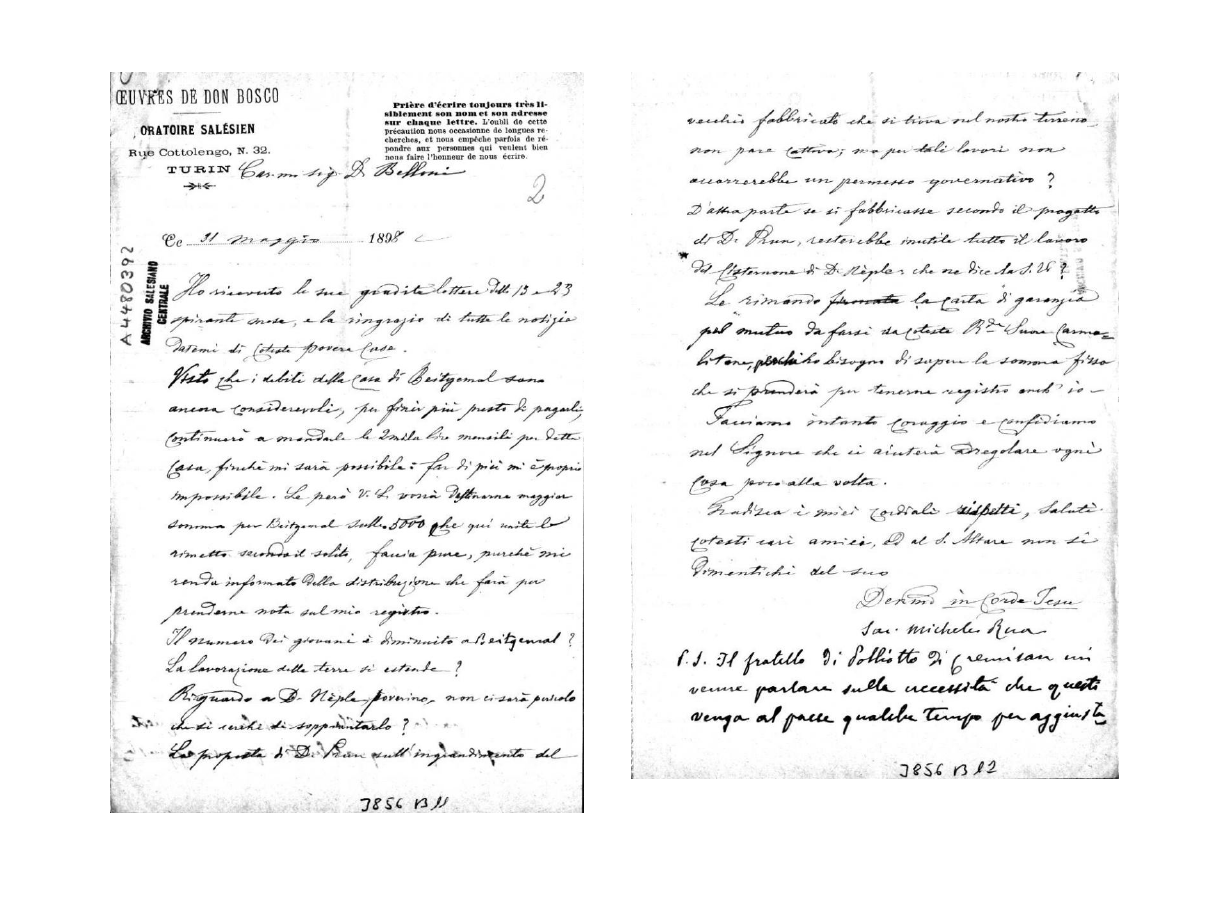 ŒUVRES DE DON BOSCO
ORATOIRE SALÉSIEN
Rue Cottolengo, N. 32.
TURIN
Prière d'écrire toujours très li-
siblement son nom et son adresse
sur chaque lettre. L'oubli de cette
précaution nous occasionne de longues re-
cherches, et nous empêche parfois de ré-
pondre aux personnes qui veulent bien
nous faire l'honneur de nous écrire.
Car.mo sig. D. Belloni
2
Ce 31 maggio 1898
A4480392
ARCHIVIO SALESIANO
CENTRALE
Ho ricevuto le sue gradite lettere delli 13 e 23
spirante mese, e la ringrazio di tutte le notizie
datemi di coteste povere Case.
Visto che i debiti della Casa di Beitgemal sono
ancora considerevoli, per finir più presto di pagarli,
continuerò a mandarle le 2mila lire mensili per detta
Casa, finchè mi sarà possibile: far di più mi è proprio
impossibile. Se però V. S. vorrà destinarne maggior
somma per Beitgemal sulle 5000 che qui unite le
rimetto secondo il solito, faccia pure, purchè mi
renda informato della distribuzione che farà per
prenderne nota sul mio registro.
Il numero dei giovani è diminuito a Beitgemal?
La lavorazione delle terre si estende?
Riguardo a D. Nèple, poverino, non ci sarà pericolo
che si cerchi di soppiantarlo?
La proposta di D. Prun sull'ingrandimento del
J856 B11
vecchio fabbricato che si trova nel nostro terreno
non pare cattiva; ma per tali lavori non
occorrerebbe un permesso governativo?
D'altra parte se si fabbricasse secondo il progetto
di D. Prun, resterebbe inutile tutto il lavoro
del Cisternone di D. Nèple: che ne dice la S. V.?
Le rimando firmata la carta di garanzia
pel mutuo da farsi da coteste R.de Suore Carme=
litane, perchè ho bisogno di sapere la somma fissa
che si prenderà per tenerne registro anch'io -
Facciamo intanto coraggio e confidiamo
nel Signore che ci aiuterà a regolare ogni
cosa poco alla volta.
Gradisca i miei cordiali rispetti, saluti
cotesti cari amici, ed al S. Altare non si
dimentichi del suo
Dev.mo in Corde Jesu
Sac. Michele Rua
P. S. Il fratello di Polliotto di Cremisan mi
venne parlare sulla necessità che questi
venga al paese qualche tempo per aggiusta
J856 B12